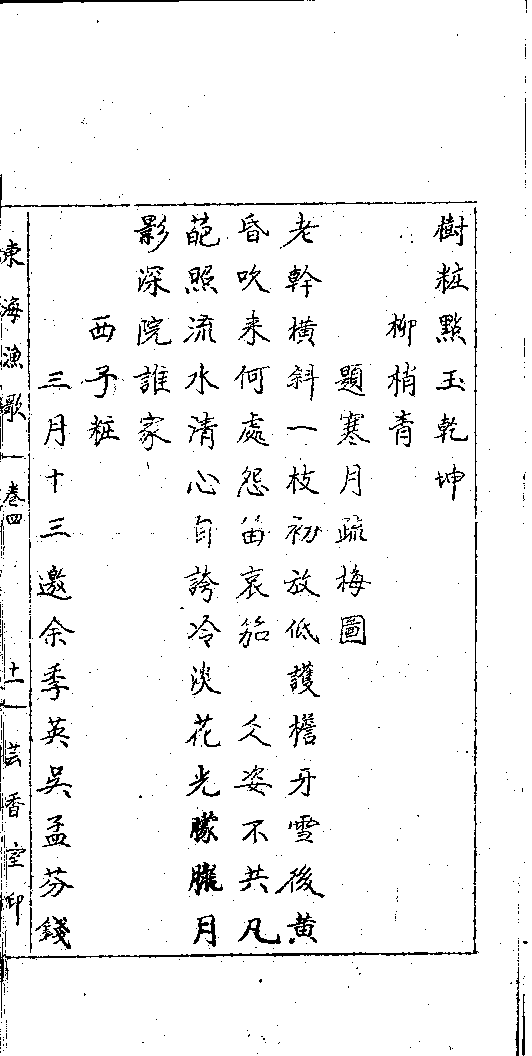 樹粧點玉乾坤
柳梢青
題寒月疏梅圖
老幹橫斜一枝初放低護檐牙雪後黃
昏吹来何處怨笛哀笳 仌姿不共凡
葩照流水清心自誇冷淡花光朦朧月
影深院誰家
西子粧
三月十三邀余季英吳孟芬錢
東海漁歌 卷四 十一 芸香室印